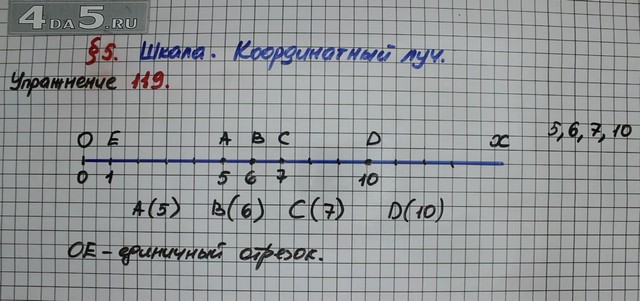 4DA5.RU
§5. Шкала. Координатный луч.
Упражнение 119.
5, 6, 7, 10
O E A B C D x
0 1 5 6 7 10
A(5) B(6) C(7) D(10)
OE - единичный отрезок.